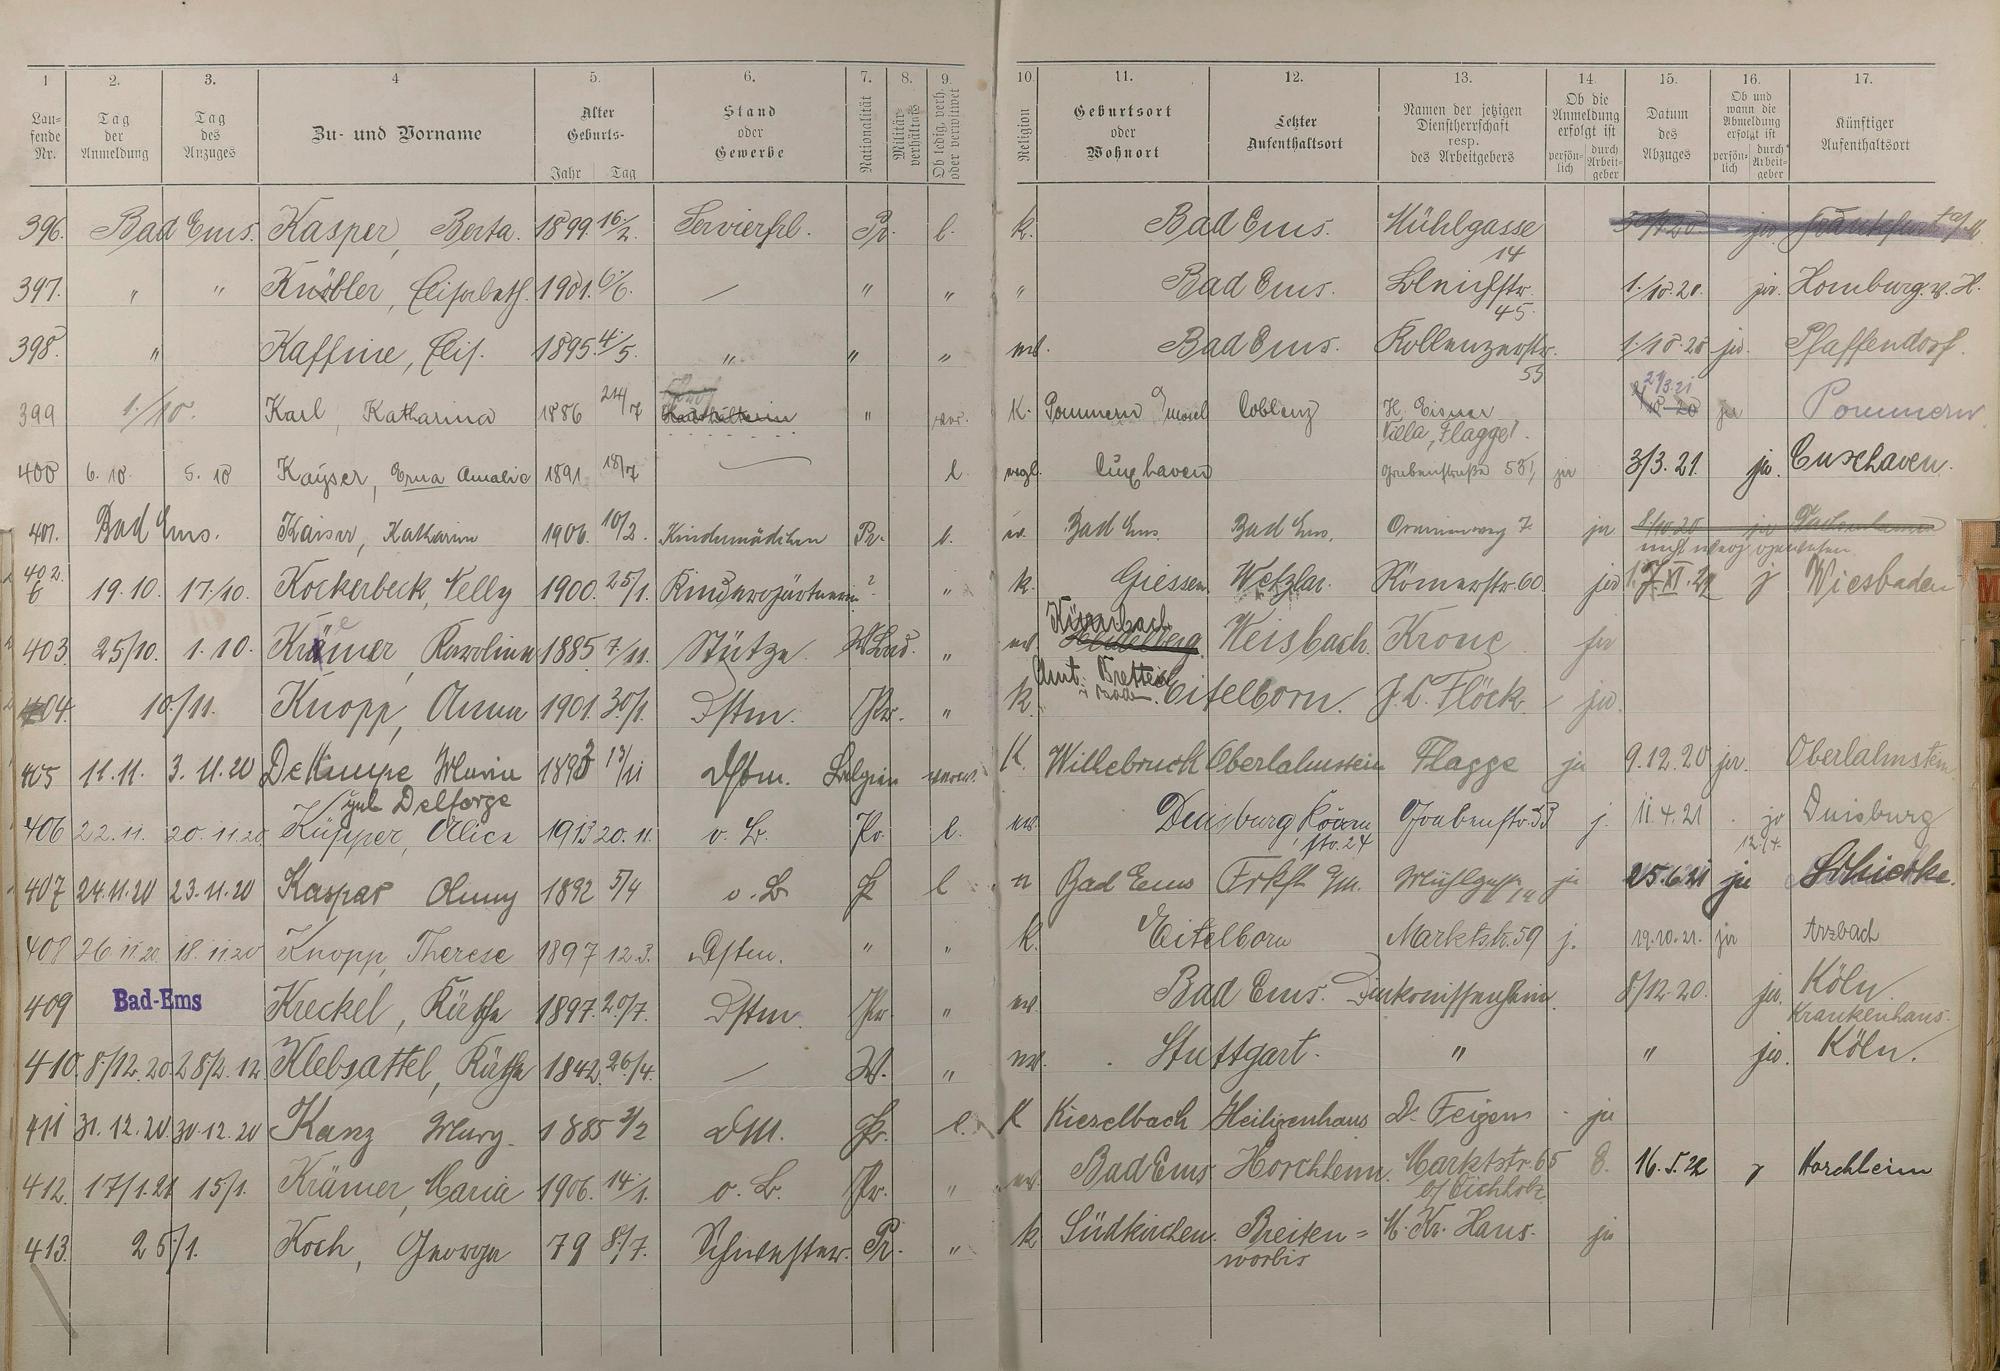 1 2. 3. 4 5. 6. 7. 8. 9. 10. 11. 12. 13. 14. 15. 16. 17.
Lau-
fende
Nr.
Tag
der
Anmeldung
Tag
des
Anzuges
Zu- und Vorname
Alter
Geburts-
Jahr Tag
Stand
oder
Gewerbe
Nationalität
Militär-
verhältnis
Ob ledig, verh.
oder verwitwet
Religion
Geburtsort
oder
Wohnort
Letzter
Aufenthaltsort
Namen der jetzigen
Dienstherrschaft
resp.
des Arbeitgebers
Ob die
Anmeldung
erfolgt ist
persön-
lich
durch
Arbeit-
geber
Datum
des
Abzuges
Ob und
wann die
Abmeldung
erfolgt ist
persön-
lich
durch
Arbeit-
geber
Künftiger
Aufenthaltsort
396. Bad Ems. Kasper, Berta. 1899. 16./2. Servierfrl. Pr. l. k. Bad Ems. Mühlgasse 14
397. " " Knöbler, Elisabeth. 1901. 6./6. — " " " Bad Ems. Bleichstr. 45. 1./10.20. ja. Homburg. v. H.
398. " Kaffine, Elis. 1895. 4./5. " " " ev. Bad Ems. Kollenzerstr. 55 1./10.20 ja. Pfaffendorf.
399 1./10. Karl, Katharina 1886 24/7 Haushälterin " K. Pommern Mosel Coblenz K. Eisner
Villa, Flagge". 21/3.21 ja Pommern
400 6.10. 5.10 Kayser, Erna Amalie 1891. 18/7 l. Cuxhaven Grabenstraße 53, ja 3/3.21. ja. Cuxhaven.
401. Bad Ems. Kaiser, Katharina 1906. 10/2. Kindermädchen Pr. l. ev. Bad Ems. Bad Ems. Oranienweg 7. ja 8/10.20 ja
402. 19.10. 17./10. Kockerbeck, Nelly 1900. 25/1. Kindergärtnerin ? " k. Giessen Wetzlar. Römerstr. 60. ja j Wiesbaden
403 25/10. 1.10. Krämer, Karolina 1885 7/11. Stütze. " ev. Heidelberg Weisbach. Krone ja
Kürnbach
Amt. Bretten
i Baden.
404 10./11. Knopp, Anna 1901. 30/1. Dstm. Pr. " k. Eitelborn. J. L. Flöck. ja.
405 11.11. 3.11.20 De Kempe Maria 1893 13/11 Dstm. Belgien verw. K. Willebruch Oberlahnstein Flagge ja 9.12.20 ja. Oberlahnstein
geb Delforge
406 22.11. 20.11.20 Küpper, Alice 1913 20.11. o. B. Pr. l. ev. Duisburg, str. 24 Grabenstr. 53 j. 11.4.21 ja Duisburg
407 24.11.20 23.11.20 Kaspar Anny 1892 5/4 o. B. P l Bad Ems Frkft a/M. Mühlgasse 14 ja 25.6.21 ja Schierke.
408 26.11.20. 18.11.20 Knopp, Therese 1897 12.3. Dstm. " " k. Eitelborn Marktstr. 59 j. 19.10.21. ja Arzbach
409 Bad-Ems Kreckel, Käthe 1897. 20/7. Dstm. Pr " ev. Bad Ems. Diakonissenheim. 8/12.20. ja. Köln.
Krankenhaus.
410. 8./12.20. 28/2.12. Klebsattel, Käthe 1842. 26./4. — W. " ev. Stuttgart. " " ja. Köln.
411 31.12.20. 30.12.20 Kanz Mary. 1885 3/2 DM. Pr. l. K Kieselbach Heiligenhaus Dr. Feigen ja
412. 17/1.21 15/1. Krämer, Maria 1906. 14./1. o. B. Pr. " ev. Bad Ems. Horchheim. Marktstr. 65
b/ Eichholz 16.5.22 Horchheim
413. 25./1. Koch, George 79 8./7. Schwester. Pr. " k Südkirchen. Breiten=
worbis M. Kr. Haus. ja